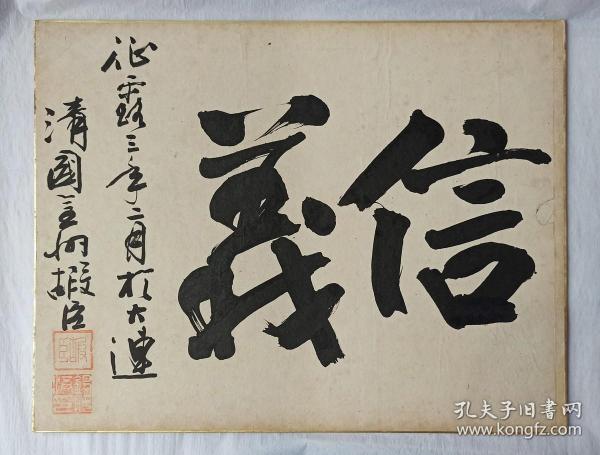 信義
征露三年二月於大連
清國金州嘏臣
孔夫子旧書网
www.kongfz.com